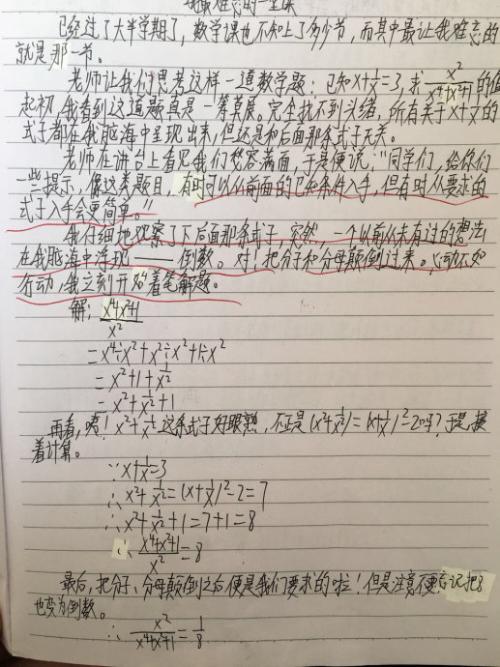 最难忘的一堂课
已经过了大半学期了，数学课也不知上了多少节，而其中最让我难忘的
就是那一节。
老师让我们思考这样一道数学题：已知x+1/x=3，求x²/(x⁴+x²+1)的值
起初，我看到这道题真是一筹莫展。完全找不到头绪，所有关于x+1/x的
式子都在我脑海中呈现出来，但还是和后面那条式子无关。
老师在讲台上看见我们愁容满面，于是便说："同学们，给你们
一些提示，像这类题目，有时可以从前面的已知条件入手，但有时从要求的
式子入手会更简单。"
我仔细地观察了下后面那条式子，突然，一个以前从未有过的想法
在我脑海中浮现——倒数。对！把分子和分母颠倒过来。心动不如
行动，我立刻开始着笔解题。
解：(x⁴+x²+1)/x²
=x⁴÷x²+x²÷x²+1÷x²
=x²+1+1/x²
=x²+1/x²+1
再看，咦！x²+1/x²这条式子好眼熟，不正是(x²+1/x²)=(x+1/x)²-2吗？于是，接
着计算。
∵x+1/x=3
∴x²+1/x²=(x+1/x)²-2=7
∴x²+1/x²+1=7+1=8
∴(x⁴+x²+1)/x²=8
最后，把分子、分母颠倒之后便是我们要求的啦！但是注意不要忘记把8
也变为倒数。
∴x²/(x⁴+x²+1)=1/8